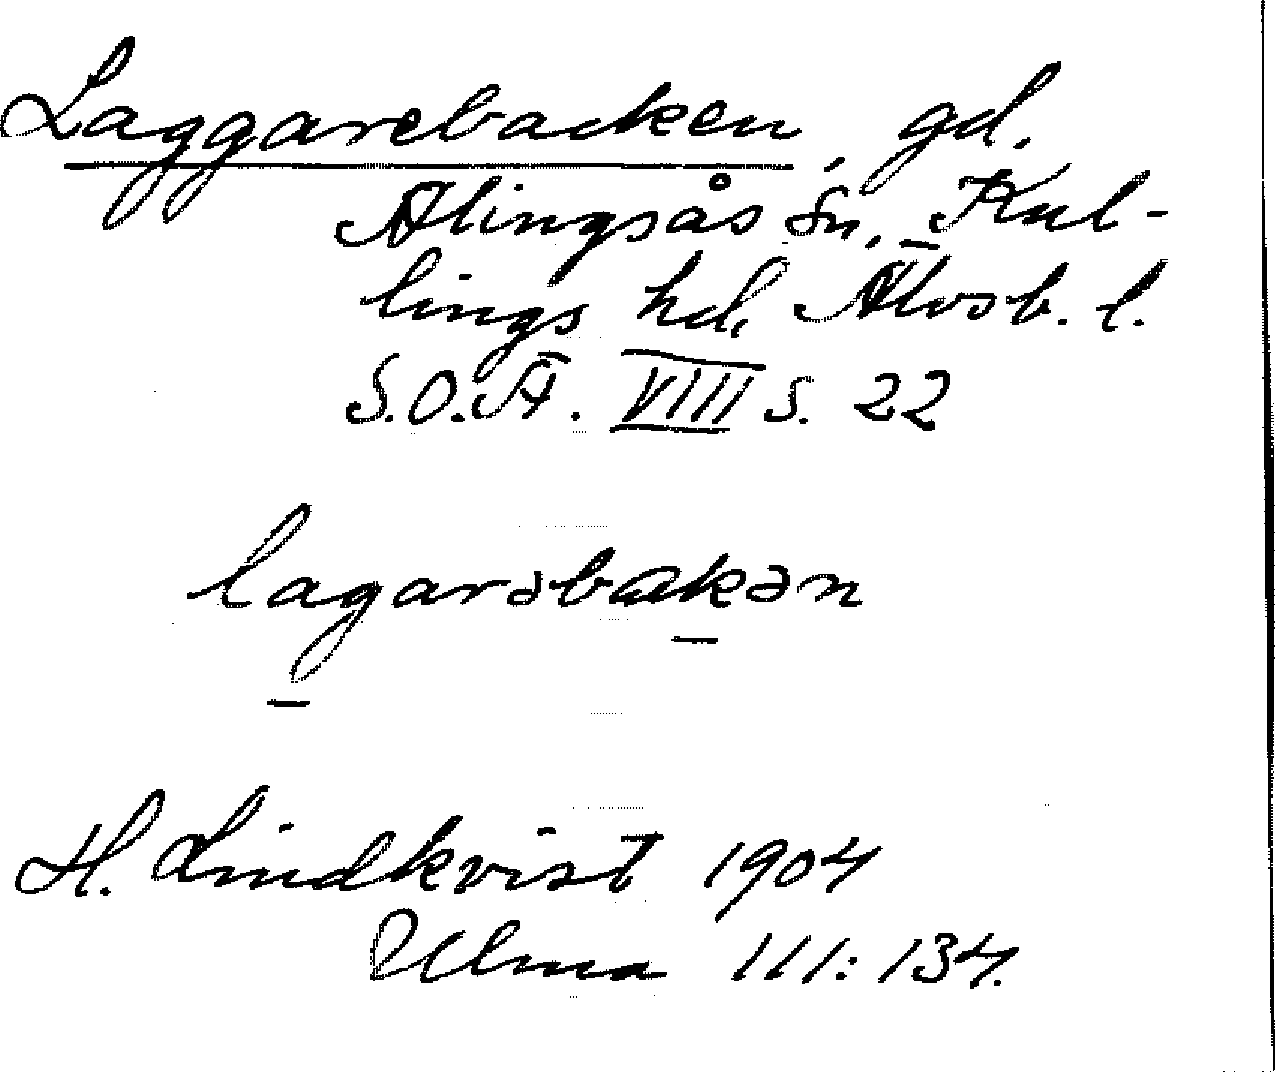 Laggarebacken, gd.
Alingsås sn, Kul-
lings hd, Älvsb. l.
S.O.Ä. VIII s. 22
lagarəbakən
H. Lindkvist 1904
Ulma 111:134.